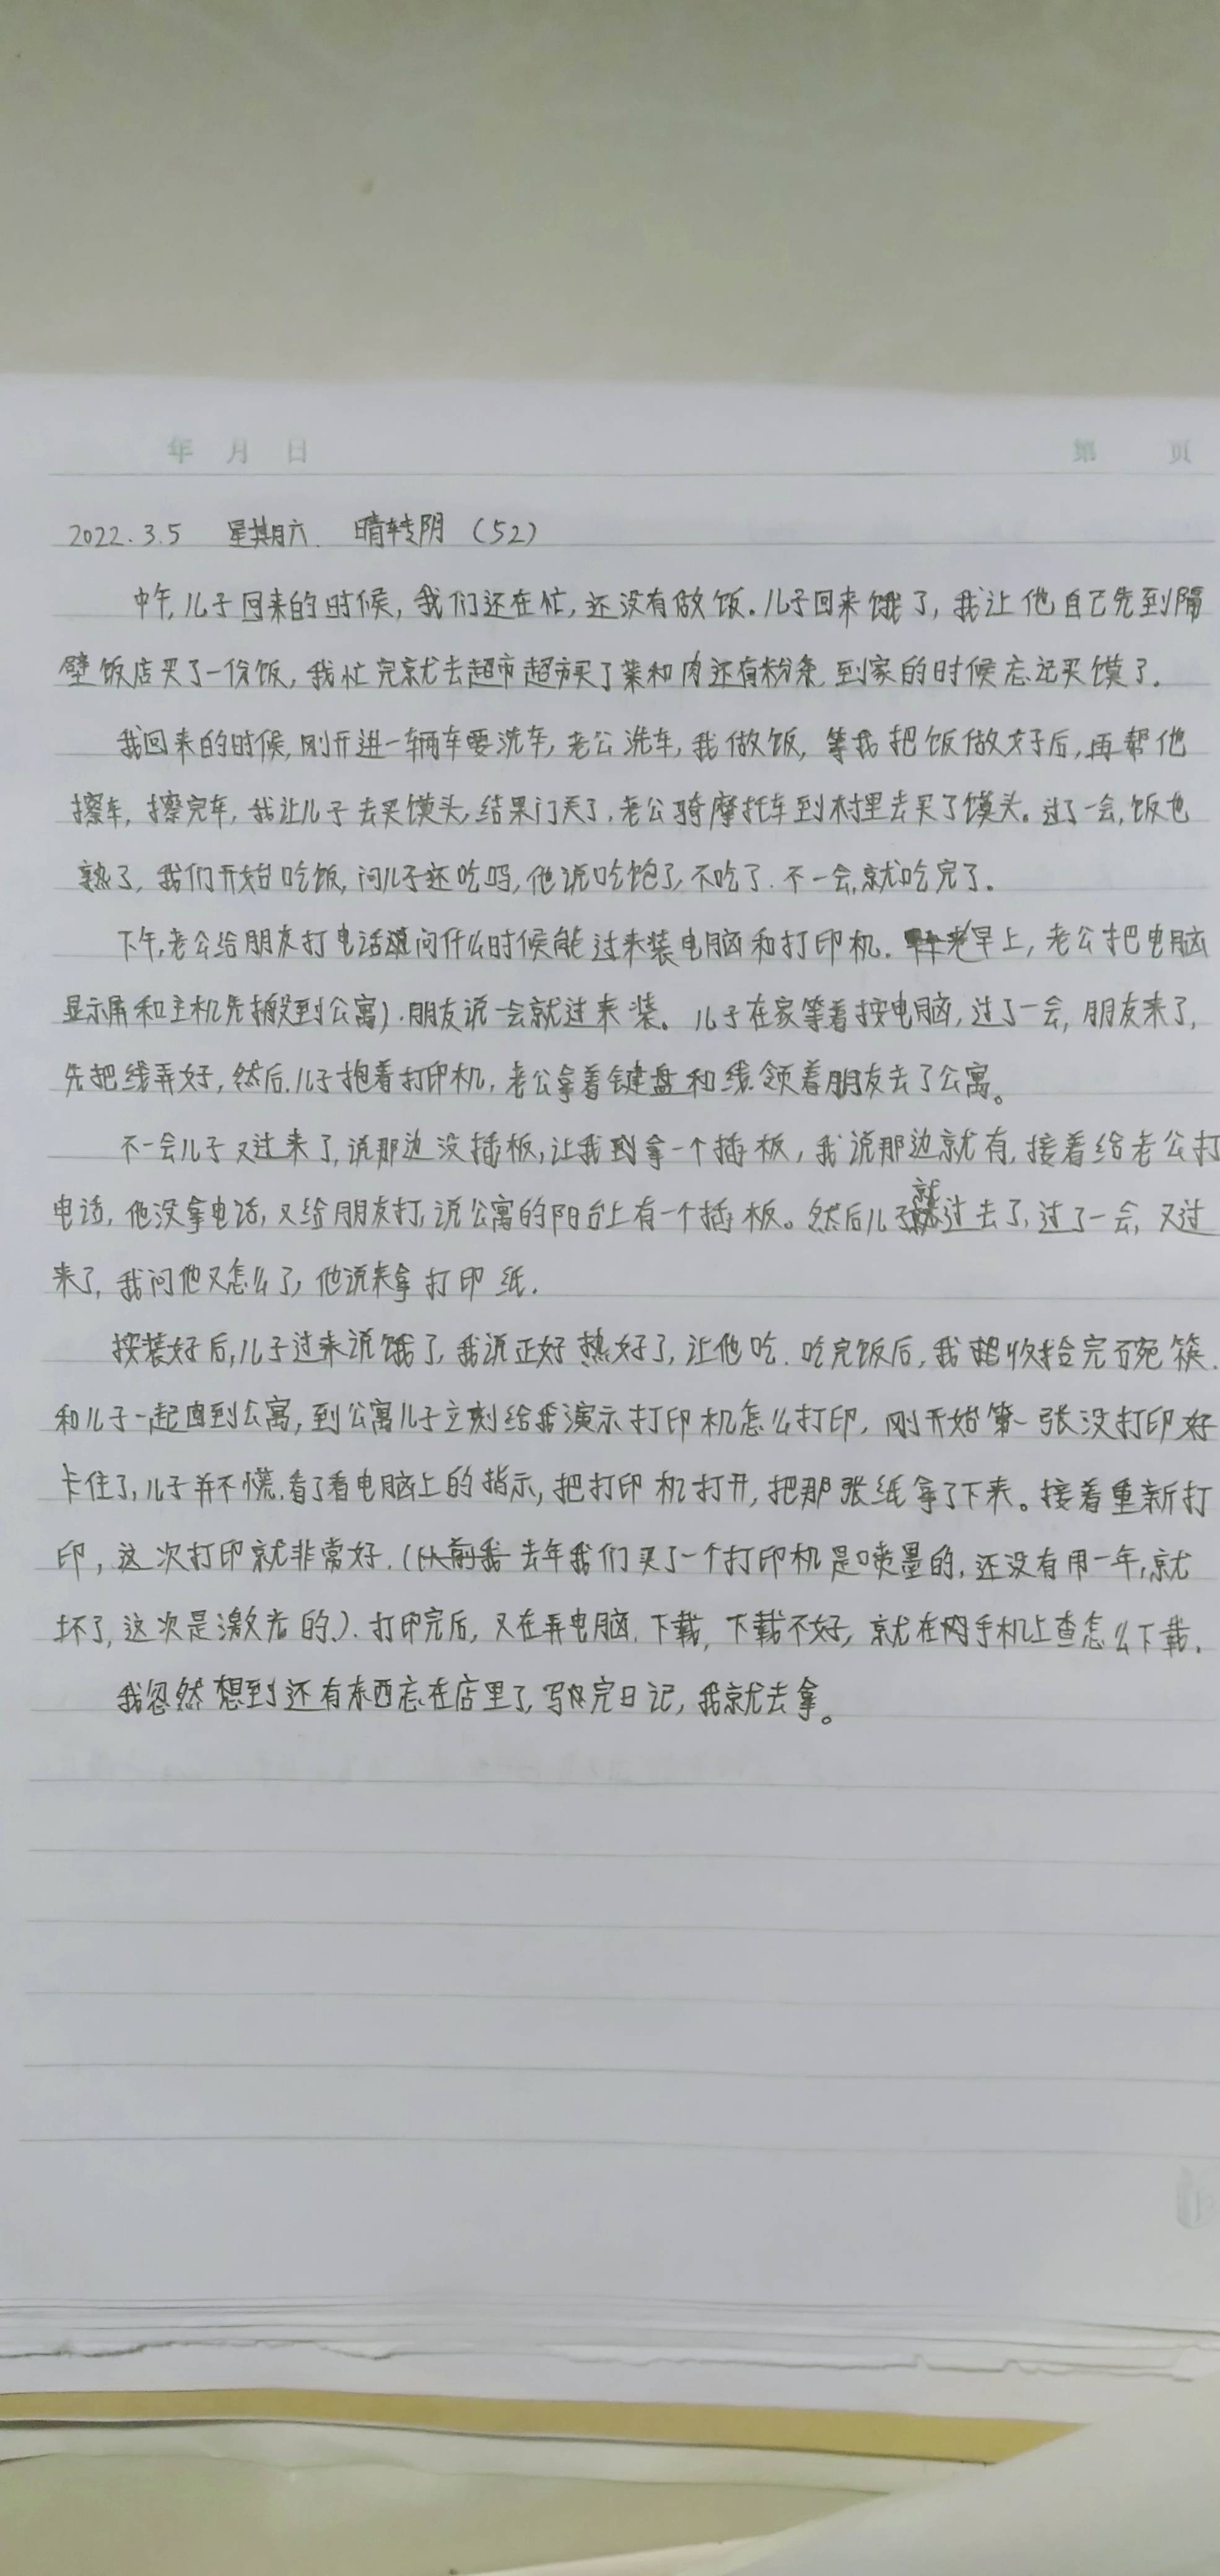 年 月 日 第 页
2022.3.5 星期六. 晴转阴 (52)
中午,儿子回来的时候,我们还在忙,还没有做饭.儿子回来饿了,我让他自己先到隔
壁饭店买了一份饭,我忙完就去超市超市买了菜和肉还有粉条,到家的时候忘记买馍了.
我回来的时候,刚开进一辆车要洗车,老公洗车,我做饭,等我把饭做好后,再帮他
擦车,擦完车,我让儿子去买馍头,结果门关了,老公骑摩托车到村里去买了馍头。过了一会,饭也
熟了,我们开始吃饭,问儿子还吃吗,他说吃饱了,不吃了.不一会,就吃完了.
下午,老公给朋友打电话问什么时候能过来装电脑和打印机. 早上,老公把电脑
显示屏和主机先搬到公寓).朋友说一会就过来装。儿子在家等着按电脑,过了一会,朋友来了,
先把线弄好,然后.儿子抱着打印机,老公拿着键盘和线.领着朋友去了公寓。
不一会儿子又过来了,说那边没插板,让我拿一个插板,我说那边就有,接着给老公打
电话,他没拿电话,又给朋友打,说公寓的阳台上有一个插板。然后儿子就过去了,过了一会,又过
来了,我问他又怎么了,他说来拿打印纸.
按装好后,儿子过来说饿了,我说正好热好了,让他吃.吃完饭后,我收拾完碗筷.
和儿子一起到公寓,到公寓儿子立刻给我演示打印机怎么打印,刚开始第一张没打印好
卡住了,儿子并不慌.看了看电脑上的指示,把打印机打开,把那张纸拿了下来。接着重新打
印,这次打印就非常好.(从前我去年我们买了一个打印机是喷墨的,还没有用一年,就
坏了,这次是激光的.).打印完后,又在弄电脑.下载,下载不好,就在网手机上查怎么下载.
我忽然想到还有东西忘在店里了,写完日记,我就去拿。